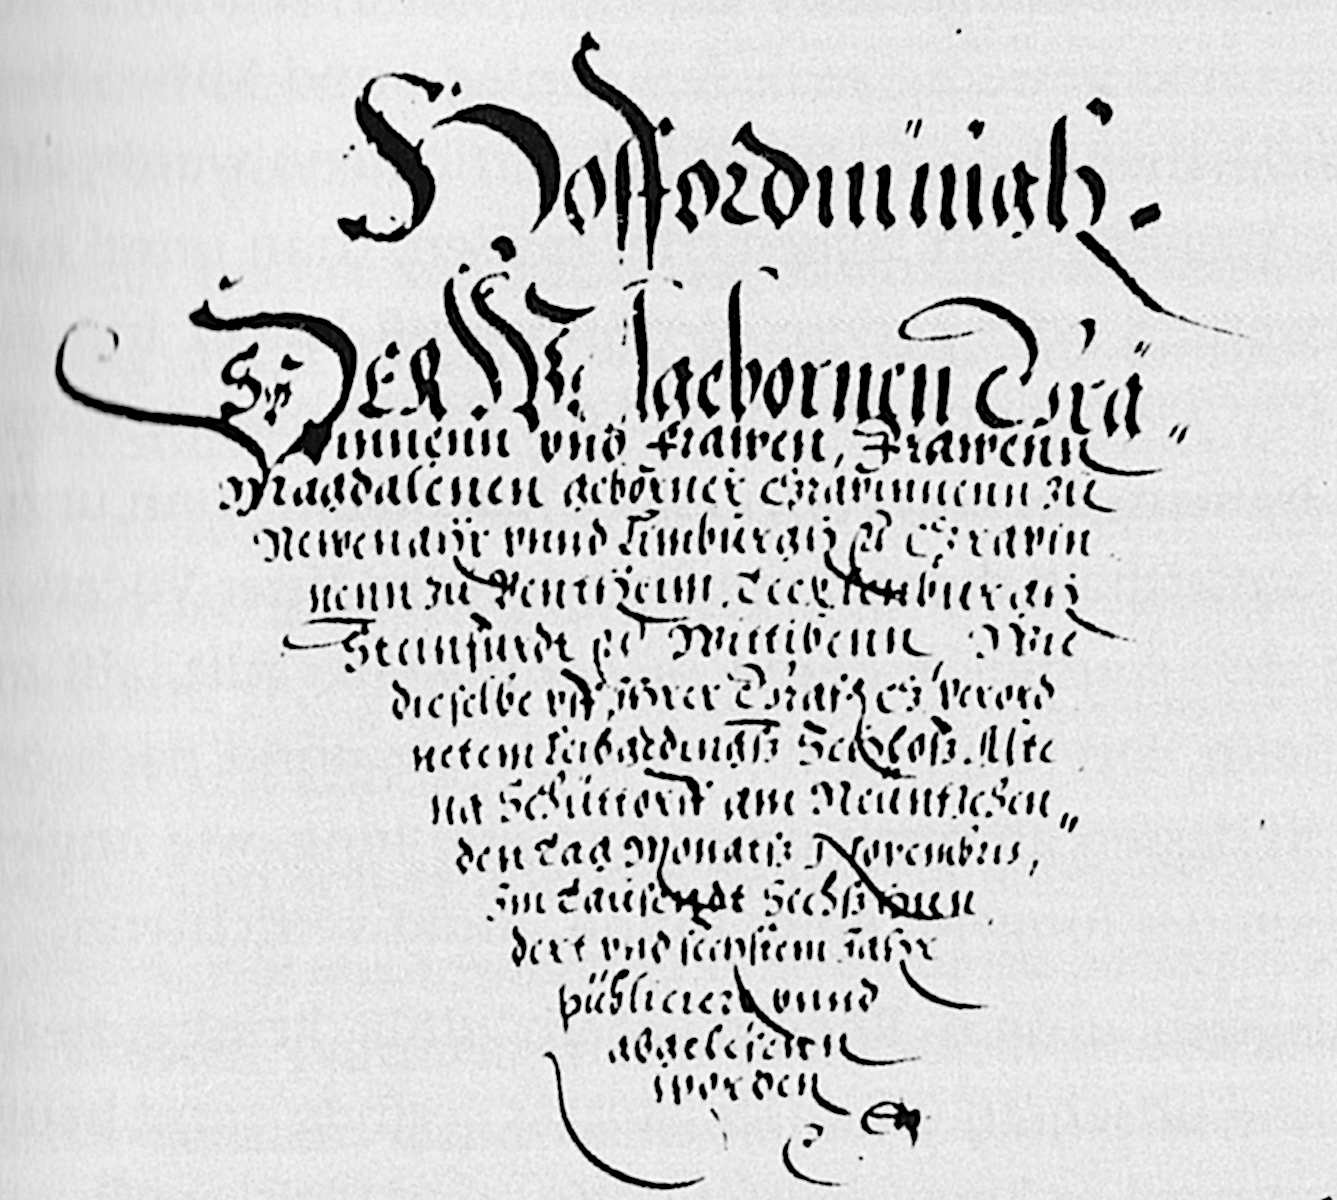 Hoffordnüngh.
DER Wolgebornen Grä"
vinnenn vnd Frawen, Frawenn
Magdalenen geborner Gravinnenn zu
Newenahr vnnd Limburgh etc Gravin
nenn zu Bentheim, Tecklenburgh
Steinfurdt etc Wittibenn Wie
dieselbe vff ihrer Gnaden verord
netem Leibgedingß Schloß Alte
na Schüttorff am Neüntzehen„
den Tag Monatß Novembris,
Im Tausendt Sechß hun
dert vnd sechstem Jahr
pübliciert vnnd
abgelesenn
worden